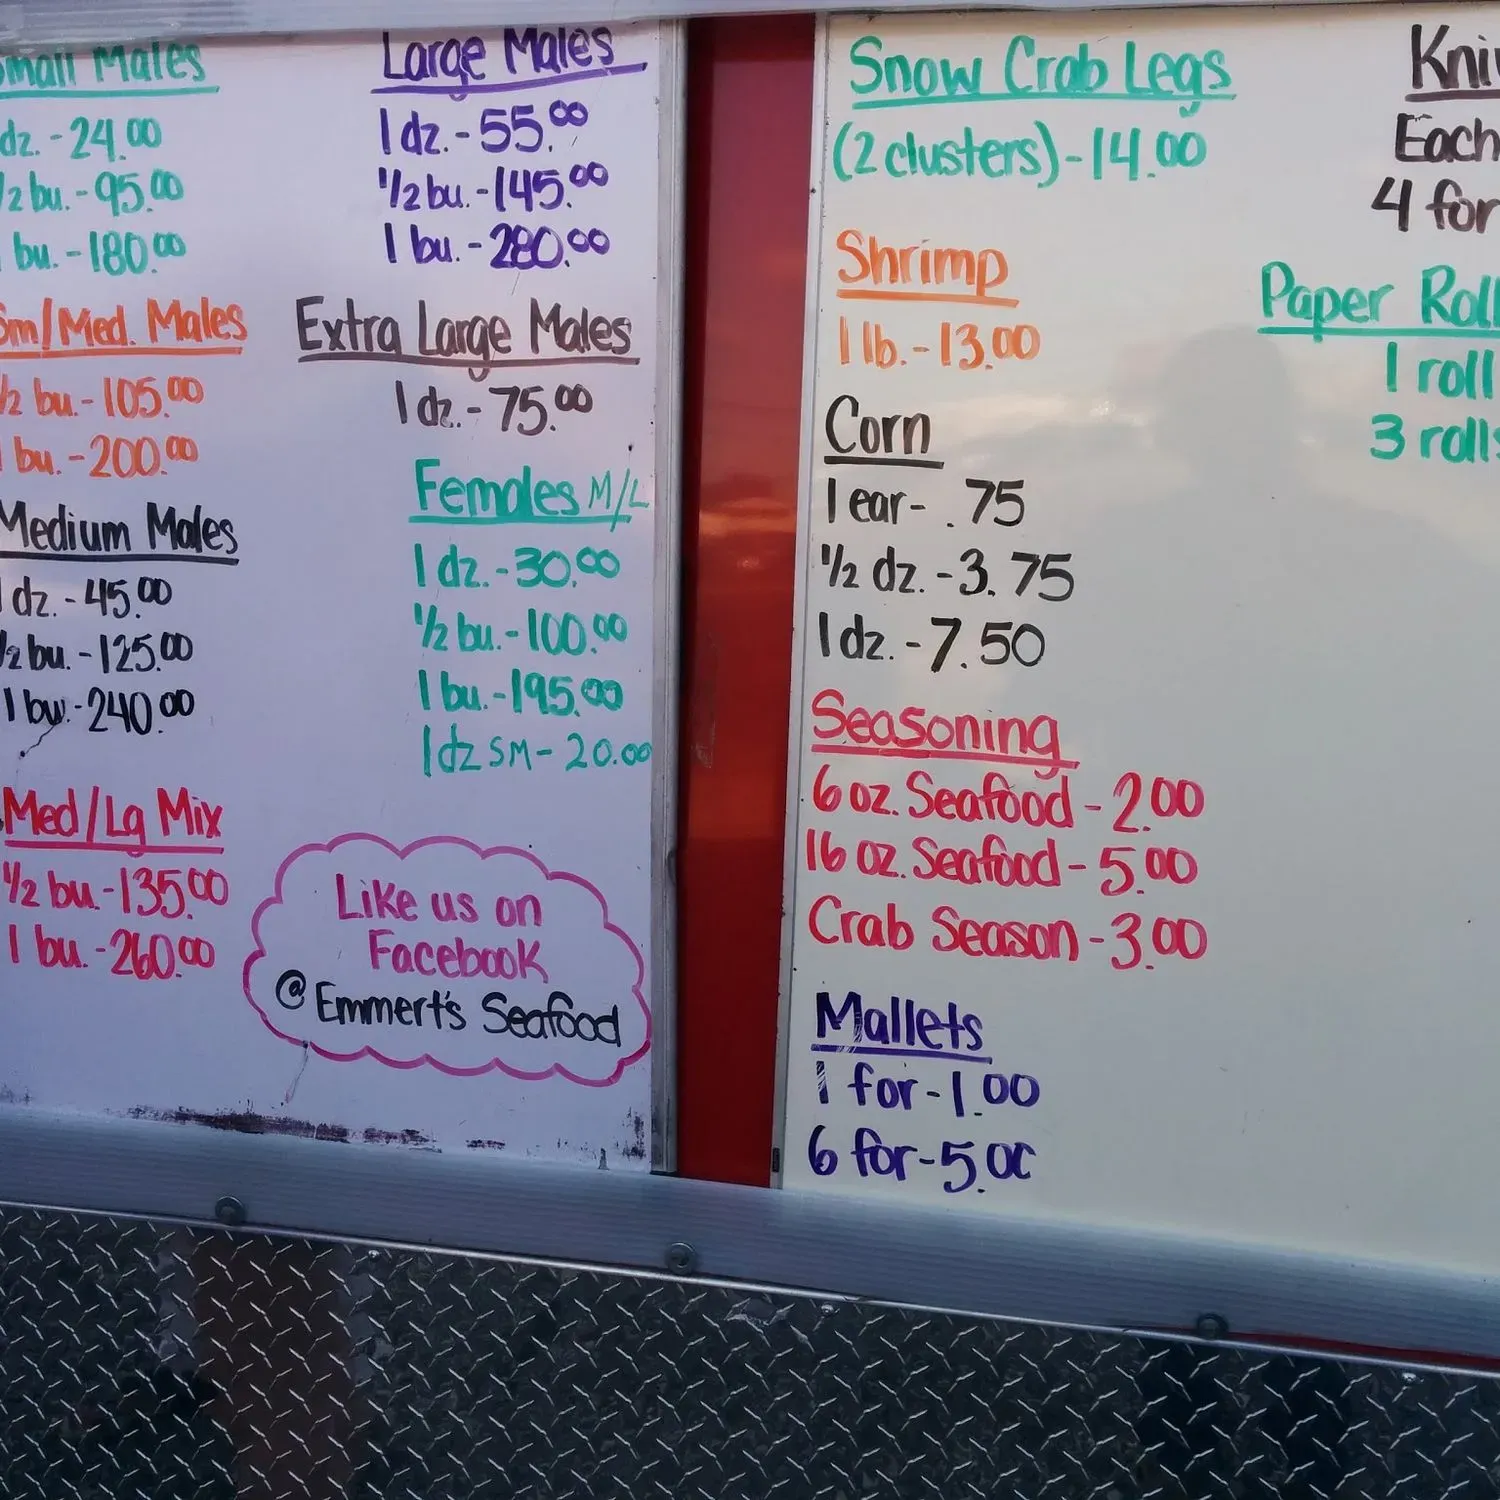 Small Males
dz. - 24.00
1/2 bu. - 95.00
1 bu. - 180.00
Sm/Med. Males
1/2 bu. - 105.00
1 bu. - 200.00
Medium Males
1 dz. - 45.00
1/2 bu. - 125.00
1 bu. - 240.00
Med/Lg Mix
1/2 bu. - 135.00
1 bu. - 260.00
Large Males
1 dz. - 55.00
1/2 bu. - 145.00
1 bu. - 280.00
Extra Large Males
1 dz. - 75.00
Females M/L
1 dz. - 30.00
1/2 bu. - 100.00
1 bu. - 195.00
1 dz SM - 20.00
Like us on
Facebook
@ Emmert's Seafood
Snow Crab Legs
(2 clusters) - 14.00
Shrimp
1 lb. - 13.00
Corn
1 ear - .75
1/2 dz. - 3.75
1 dz. - 7.50
Seasoning
6 oz. Seafood - 2.00
16 oz. Seafood - 5.00
Crab Season - 3.00
Mallets
1 for - 1.00
6 for - 5.00
Each
4 for
Paper Roll
1 roll
3 rolls